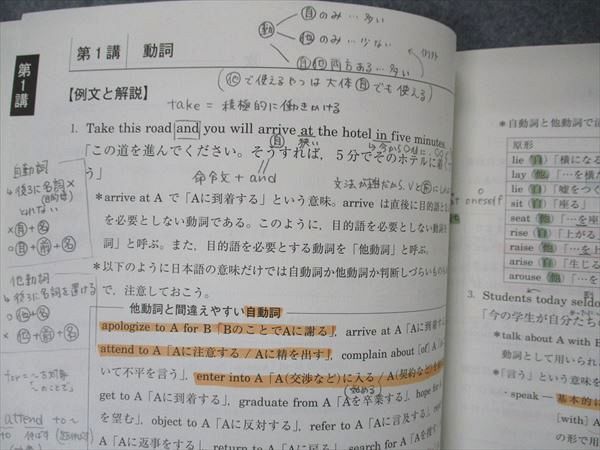 第1講
第1講 動詞
動
自のみ…多い
他のみ…少ない
自他両方ある…多い
(他で使えるやつは大体自でも使える)
【例文と解説】
take = 積極的に働きかける
1. Take this road and you will arrive at the hotel in five minutes.
自 狭い
「この道を進んでください。そうすれば，5分でそのホテルに着く
う」
命令文 + and
*arrive at A で「Aに到着する」という意味。arrive は直後に目的語と
を必要としない動詞である。このように，目的語を必要としない動
詞」と呼ぶ。また，目的語を必要とする動詞を「他動詞」と呼ぶ。
*以下のように日本語の意味だけでは自動詞か他動詞か判断しづらいもの
で，注意しておこう。
他動詞と間違えやすい自動詞
apologize to A for B「BのことでAに謝る」, arrive at A「Aに到着す
attend to A「Aに注意する / Aに精を出す」, complain about [of] A
いて不平を言う」, enter into A「A(交渉など)に入る / A(契約など)を
始める
get to A「Aに到着する」, graduate from A「Aを卒業する」, hope for
を望む」, object to A「Aに反対する」, refer to A「Aに言及する」
A「Aに返事をする」, return to A「Aに戻る」, search for A「Aを捜
自動詞
↳後ろに名詞×
(目的語)
とれない
×自+名
○自+前+名
他動詞
↳後ろに名詞を置ける
○他+名
×他+前+名
for=~対象
「~のことで」
attend to~
*自動詞と他動詞で
原形
lie 自「横になる
lay 他「…を横た
lie 自「嘘をつく
sit 自「座る」
seat 他「…を座
oneself
rise 自「上がる」
raise 他「…を上
arise 自「生じる
arouse 他「…
3. Students today seldo
「今の学生が自分たち
*talk about A with B
動詞として用いられ
*「言う」という意味を
・speak ― 基本的に
[with] A
の形で用